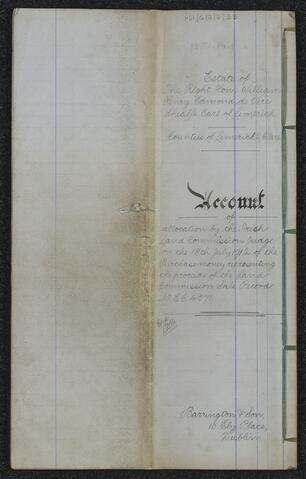 Estate of
The Right Hon. William
Henry Edmond de Vere
Sheaffe Earl of Limerick
Counties of Limerick & Clare
Account
of
allocation by the Irish
Land Commission Judge
on the 18th July 1912 of the
Purchase money representing
the proceeds of the Land
Commission Sale Record
Barrington & Son,
10 Ely Place,
Dublin